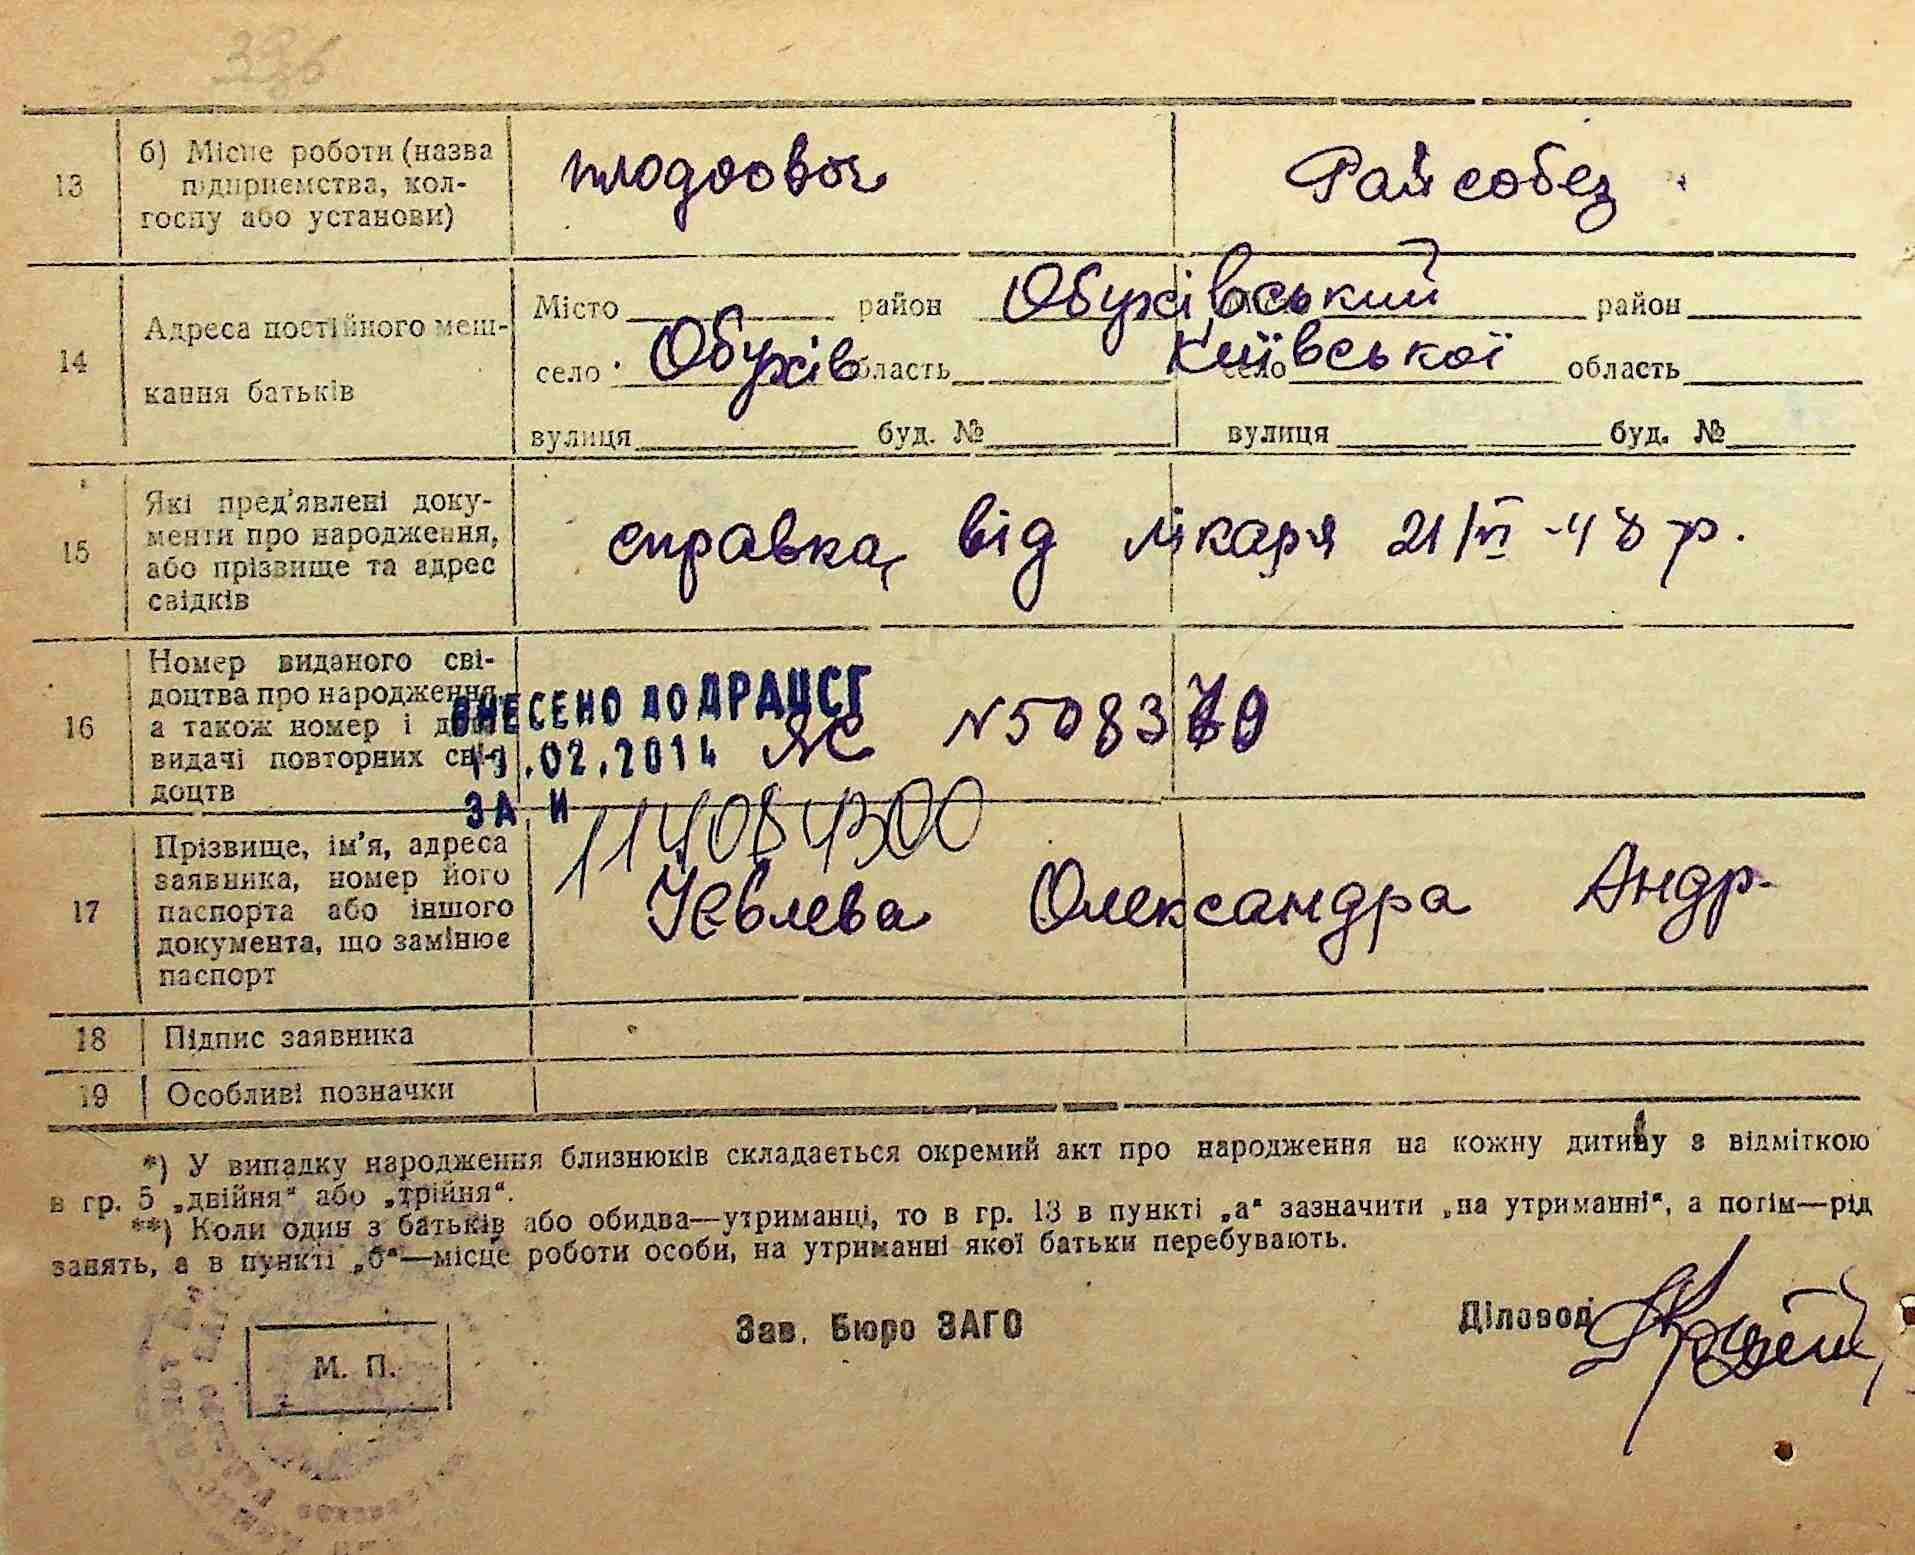 336
13
б) Місце роботи (назва
підприємства, кол-
госпу або установи)
плодоовоч
Райсобез
14
Адреса постійного меш-
кання батьків
Місто район Обухівський район
село Обухів область Київської село область
вулиця буд. № вулиця буд. №
15
Які пред'явлені доку-
менти про народження,
або прізвище та адрес
свідків
справка від лікаря 21/VI -48 р.
16
Номер виданого сві-
доцтва про народження
а також номер і дата
видачі повторних сві-
доцтв
ВНЕСЕНО ДО ДРАЦСГ
.02.2014
ЗА И
ЯС N 508370
1140841300
17
Прізвище, ім'я, адреса
заявника, номер його
паспорта або іншого
документа, що замінює
паспорт
Іевлева Олександра Андр.
18 Підпис заявника
19 Особливі позначки
*) У випадку народження близнюків складається окремий акт про народження на кожну дитину з відміткою
в гр. 5 „двійня“ або „трійня“.
**) Коли один з батьків або обидва—утриманці, то в гр. 13 в пункті „а“ зазначити „на утриманні“, а потім—рід
занять, а в пункті „б“—місце роботи особи, на утриманні якої батьки перебувають.
М. П.
Зав. Бюро ЗАГС
Діловод